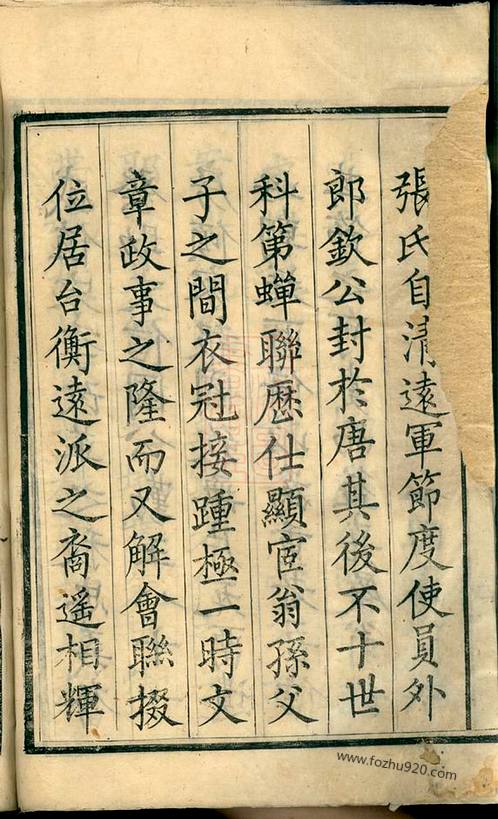 張氏自清遠軍節度使員外
郎欽公封於唐其後不十世
科第蟬聯歷仕顯宦翁孫父
子之間衣冠接踵極一時文
章政事之隆而又解會聯掇
位居台衡遠派之裔遥相輝
www.fozhu920.com